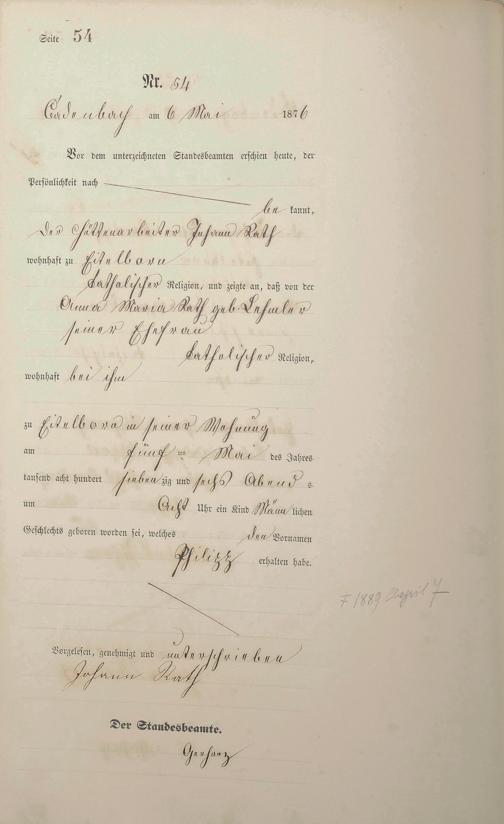 Seite 54
Nr. 54
Cadenbach am 6 Mai 1876
Vor dem unterzeichneten Standesbeamten erschien heute, der
Persönlichkeit nach
be kannt,
der Hüttenarbeiter Johann Rath
wohnhaft zu Eitelborn
katholischer Religion, und zeigte an, daß von der
Anna Maria Rath geb. Lehmler
seiner Ehefrau
katholischer Religion,
wohnhaft bei ihm
zu Eitelborn in seiner Wohnung
am fünf = Mai des Jahres
tausend acht hundert sieben zig und sechs Abend s
um Acht Uhr ein Kind Männ lichen
Geschlechts geboren worden sei, welches den Vornamen
Philipp erhalten habe.
1889 April 7
Vorgelesen, genehmigt und unterschrieben
Johann Rath
Der Standesbeamte.